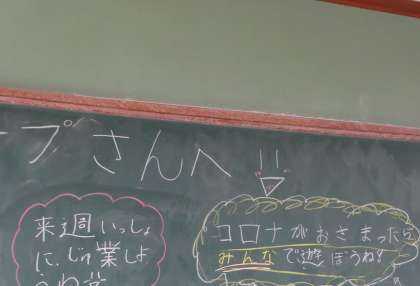 ープさんへ!!
来週いっしょ
に、じゅ業しよ
コロナがおさまったら
みんなで遊ぼうね!